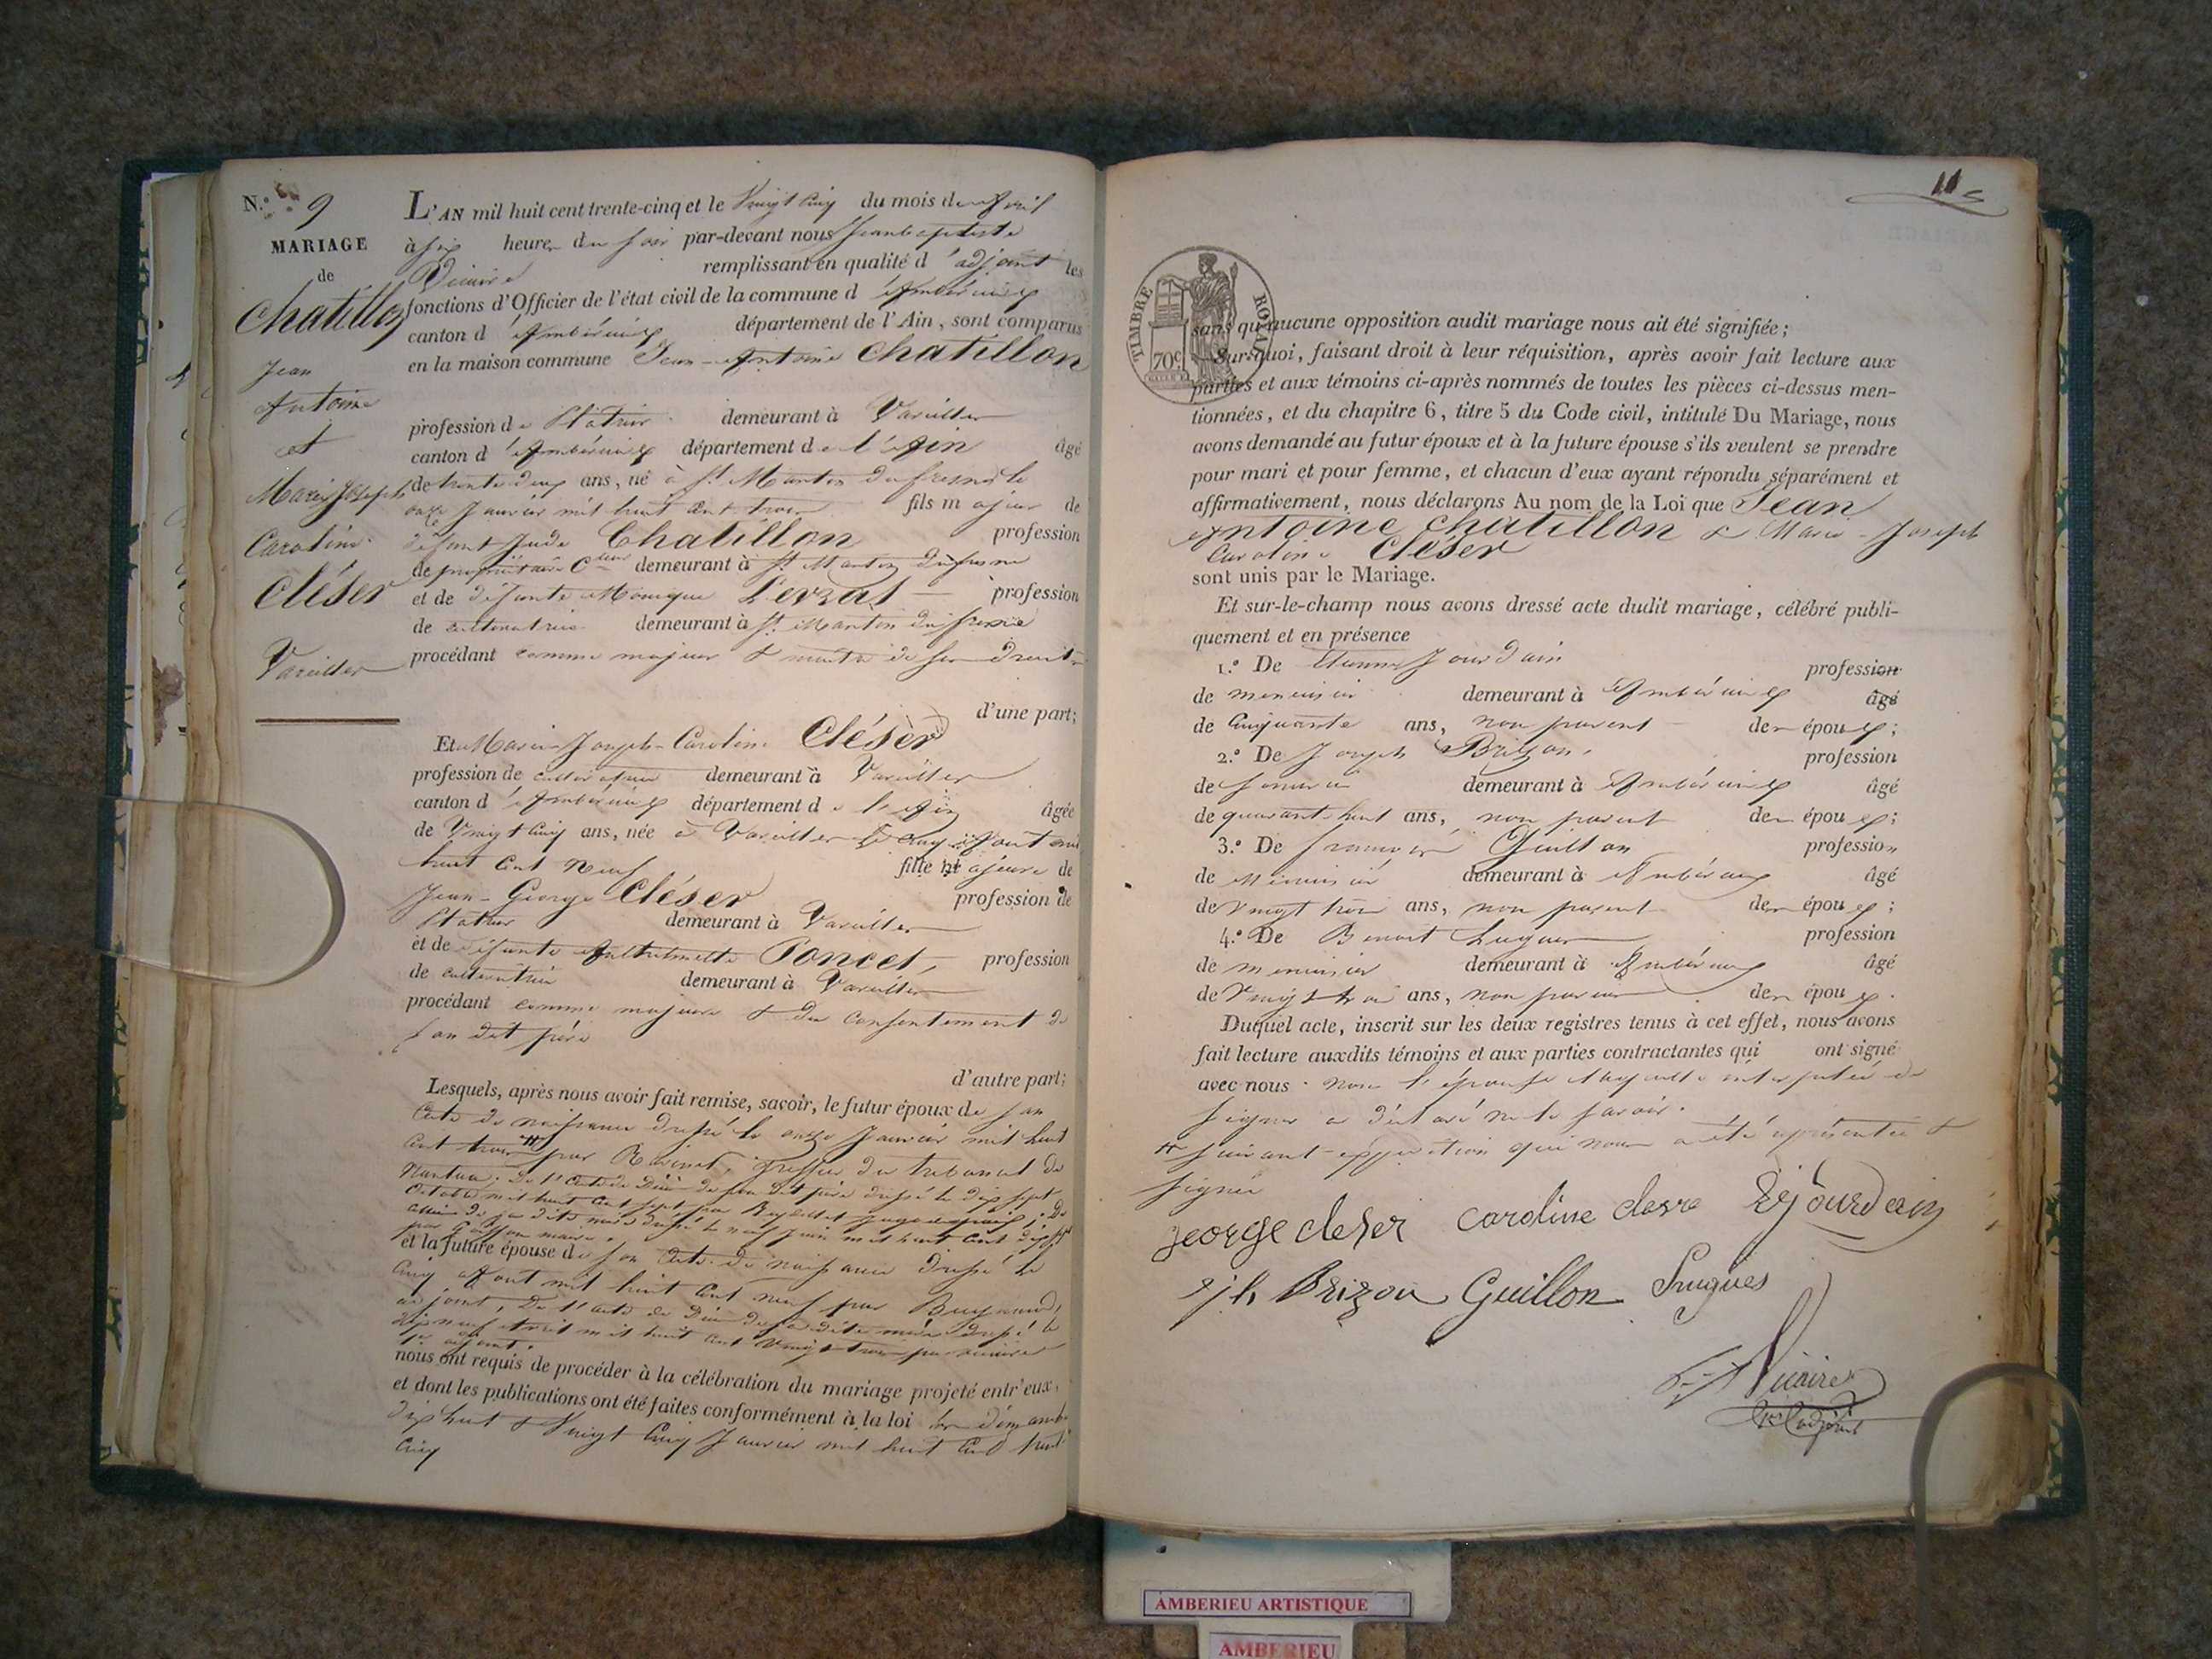 N.° 9
MARIAGE
de
Chatillon
Jean
Antoine
et
Marie Joseph
Caroline
Cléser
Vareilles
L'AN mil huit cent trente-cinq et le Vingt Cinq du mois d'avril
à six heures du soir par-devant nous Jean baptiste
Vicaire remplissant en qualité d'adjoint les
fonctions d'Officier de l'état civil de la commune d'Ambérieux
canton d'Ambérieux département de l'Ain, sont comparus
en la maison commune Jean-Antoine Chatillon
profession de Platrier demeurant à Vareilles
canton d'Ambérieux département de l'Ain âgé
de trente deux ans, né à St Martin du fresne le
onze Janvier mil huit cent trois fils majeur de
défunt Jude Chatillon profession
de propriétaire Cteur demeurant à St Martin du fresne
et de défunte Monique Levrat profession
de cultivatrice demeurant à St Martin du fresne
procédant comme majeur & maitre de ses droits
d'une part;
Et Marie-Joseph-Caroline Cléser
profession de cultivatrice demeurant à Vareilles
canton d'Ambérieux département de l'Ain âgée
de Vingt Cinq ans, née à Vareilles le cinq Aout mil
huit Cent Neuf fille majeure de
Jean-George Cléser profession de
Platrier demeurant à Vareilles
et de défunte Poncet, profession
de cultivatrice demeurant à Vareilles
procédant comme majeure & du consentement de
son dit père
d'autre part;
Lesquels, après nous avoir fait remise, savoir, le futur époux de son
acte de naissance dressé le onze Janvier mil huit
cent trois # par greffier du tribunal de
Nantua; De l'acte de Décès de son dit père dressé le dix sept
Octobre mil huit cent sept par juge de paix; De
celui de sa dite mère dressé le neuf juin mil huit cent dix sept
par maire.
et la future épouse de son acte de naissance dressé le
cinq Aout mil huit cent neuf par
adjoint, De l'acte de Décès de sa dite mère dressé le
dix neuf avril mil huit cent vingt trois par Vicaire
1er adjoint.
nous ont requis de procéder à la célébration du mariage projeté entr'eux,
et dont les publications ont été faites conformément à la loi les dimanches
dix huit & Vingt Cinq Janvier mil huit Cent trente
cinq
11
TIMBRE ROYAL
70c
sans qu'aucune opposition audit mariage nous ait été signifiée;
Sur quoi, faisant droit à leur réquisition, après avoir fait lecture aux
parties et aux témoins ci-après nommés de toutes les pièces ci-dessus men-
tionnées, et du chapitre 6, titre 5 du Code civil, intitulé Du Mariage, nous
avons demandé au futur époux et à la future épouse s'ils veulent se prendre
pour mari et pour femme, et chacun d'eux ayant répondu séparément et
affirmativement, nous déclarons Au nom de la Loi que Jean
Antoine Chatillon & Marie-Joseph
Caroline Cléser
sont unis par le Mariage.
Et sur-le-champ nous avons dressé acte dudit mariage, célébré publi-
quement et en présence
1.° De Etienne Jourdain profession
de menuisier demeurant à Ambérieux âgé
de Cinquante ans, non parent des époux;
2.° De Joseph Brizon, profession
de demeurant à Ambérieux âgé
de quarante huit ans, non parent des époux;
3.° De Guillon profession
de Menuisier demeurant à Ambérieux âgé
de Vingt trois ans, non parent des époux;
4.° De Benoit Hugues profession
de menuisier demeurant à Ambérieux âgé
de Vingt trois ans, non parent des époux.
Duquel acte, inscrit sur les deux registres tenus à cet effet, nous avons
fait lecture auxdits témoins et aux parties contractantes qui ont signé
avec nous. non l'époux lequel interpellé de
signer a déclaré ne le savoir.
# suivant expédition qui nous a été représentée &
signée
george cleser caroline Ej ourdain
Jh Brizon Guillon hugues
Vicaire
1er adjoint
AMBERIEU ARTISTIQUE
AMBERIEU